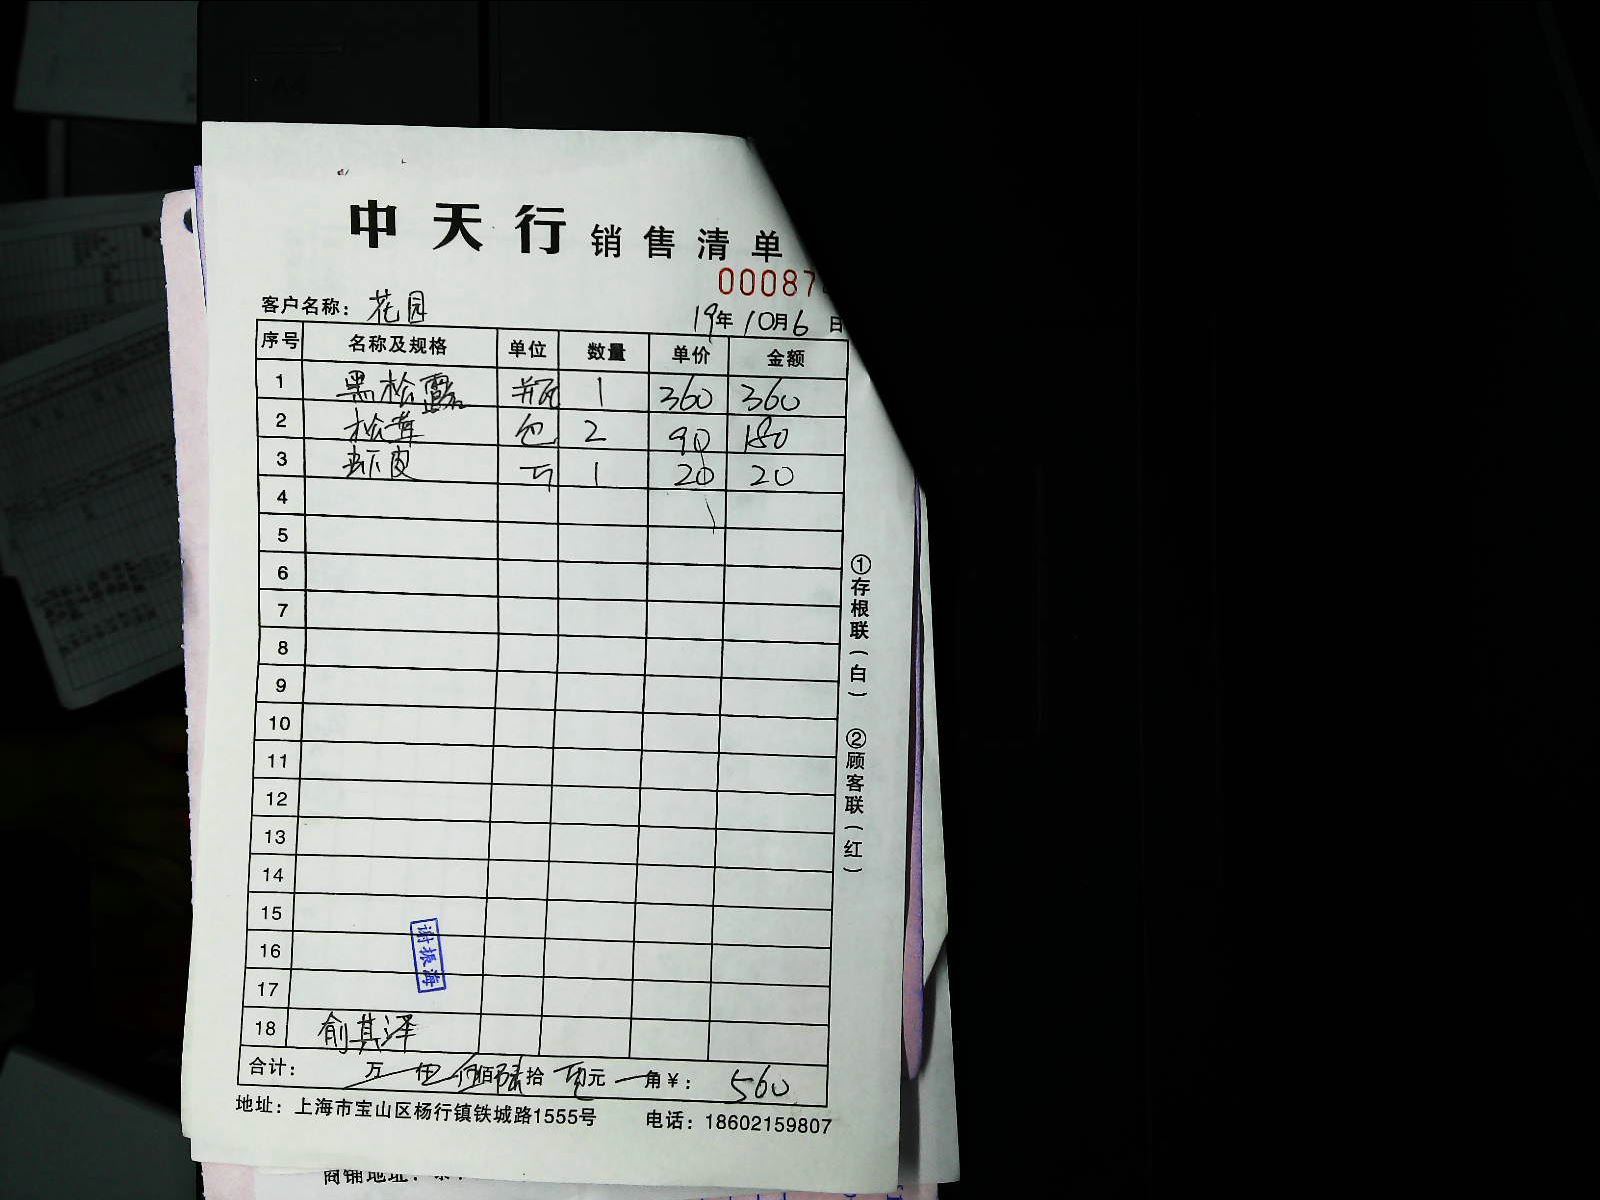 中天行 销售清单
00087
客户名称: 花园 19年10月6日
序号 名称及规格 单位 数量 单价 金额
1 黑松露 瓶 1 360 360
2 松茸 包 2 90 180
3 虾皮 斤 1 20 20
4
5
6
7
8
9
10
11
12
13
14
15
16
17
谢振海
18 俞其泽
合计: 万 仟 伍佰陆拾 元 角¥: 560
地址: 上海市宝山区杨行镇铁城路1555号 电话: 18602159807
①存根联(白) ②顾客联(红)
商铺地址: